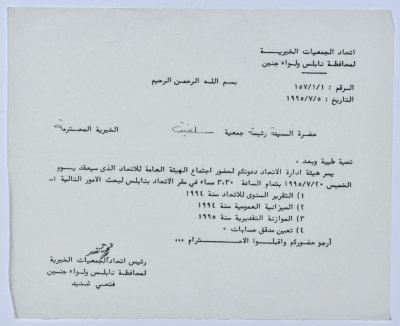 اتحاد الجمعيات الخيرية
لمحافظة نابلس ولواء جنين
الرقم : ١٥٧/١/١
التاريخ : ١٩٩٥/٧/٥
بسم الله الرحمن الرحيم
حضرة السيدة رئيسة جمعية سلفيت الخيرية المحترمة
تحية طيبة وبعد ،
يسر هيئة ادارة الاتحاد دعوتكم لحضور اجتماع الهيئة العامة للاتحاد الذى سيعقد يوم
الخميس ١٩٩٥/٧/٢٠ بتمام الساعة ٣،٣٠ مساء في مقر الاتحاد بنابلس لبحث الامور التالية :-
١) التقرير السنوى للاتحاد سنة ١٩٩٤
٢) الميزانية العمومية سنة ١٩٩٤
٣) الموازنة التقديرية سنة ١٩٩٥
٤) تعين مدقق حسابات ٠
أرجو حضوركم واقبلوا الاحترام ،،،
رئيس اتحاد الجمعيات الخيرية
لمحافظة نابلس ولواء جنين
فتحي شديد